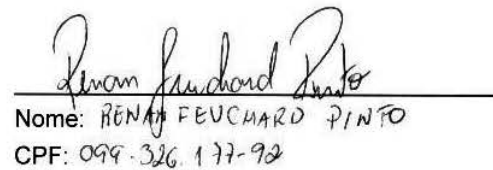 Renan Feuchard Pinto
Nome: RENAN FEUCHARD PINTO
CPF: 099.326.177-92